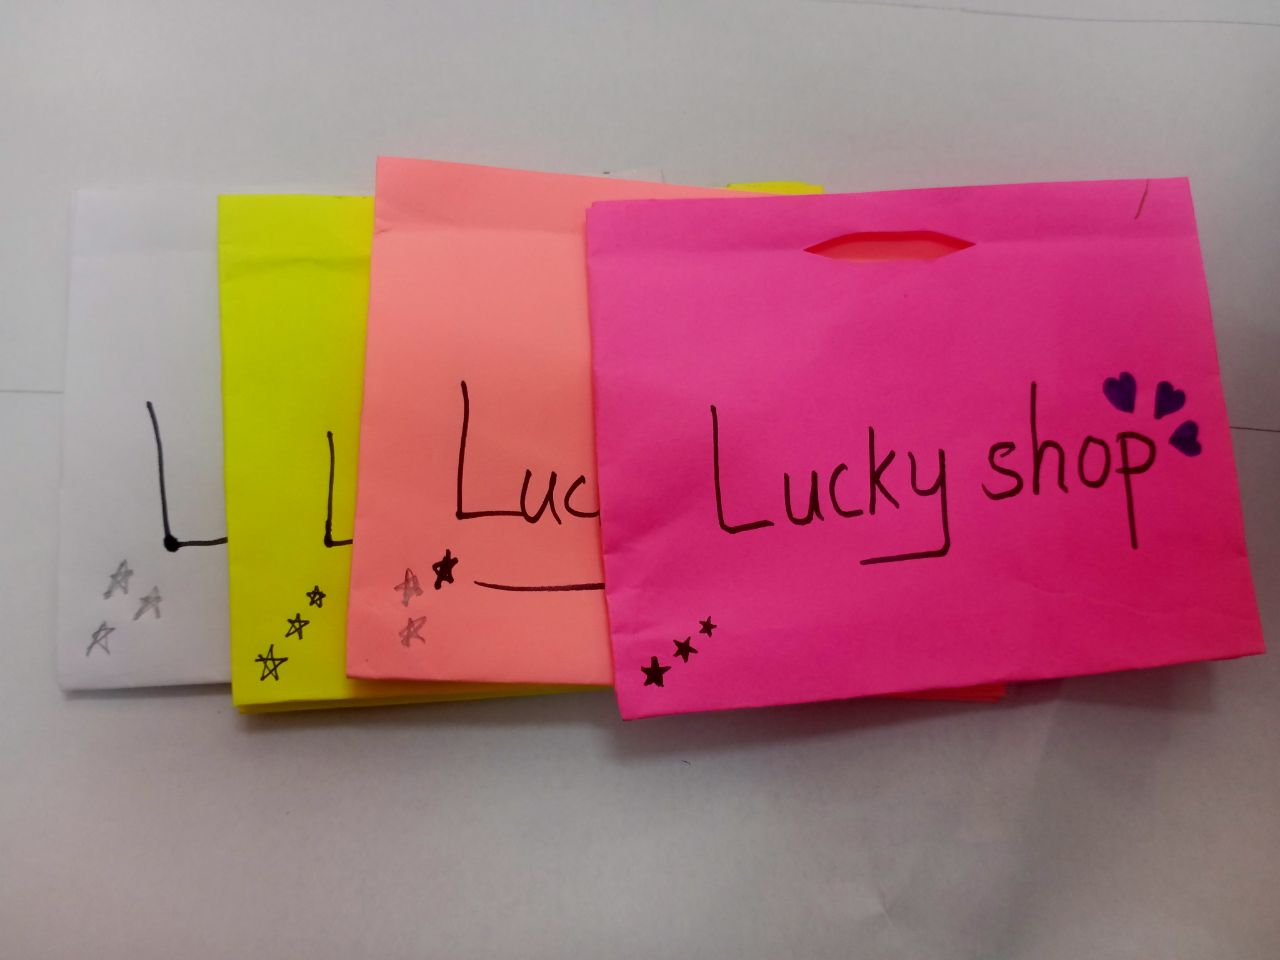 L
L
Luc
Lucky shop